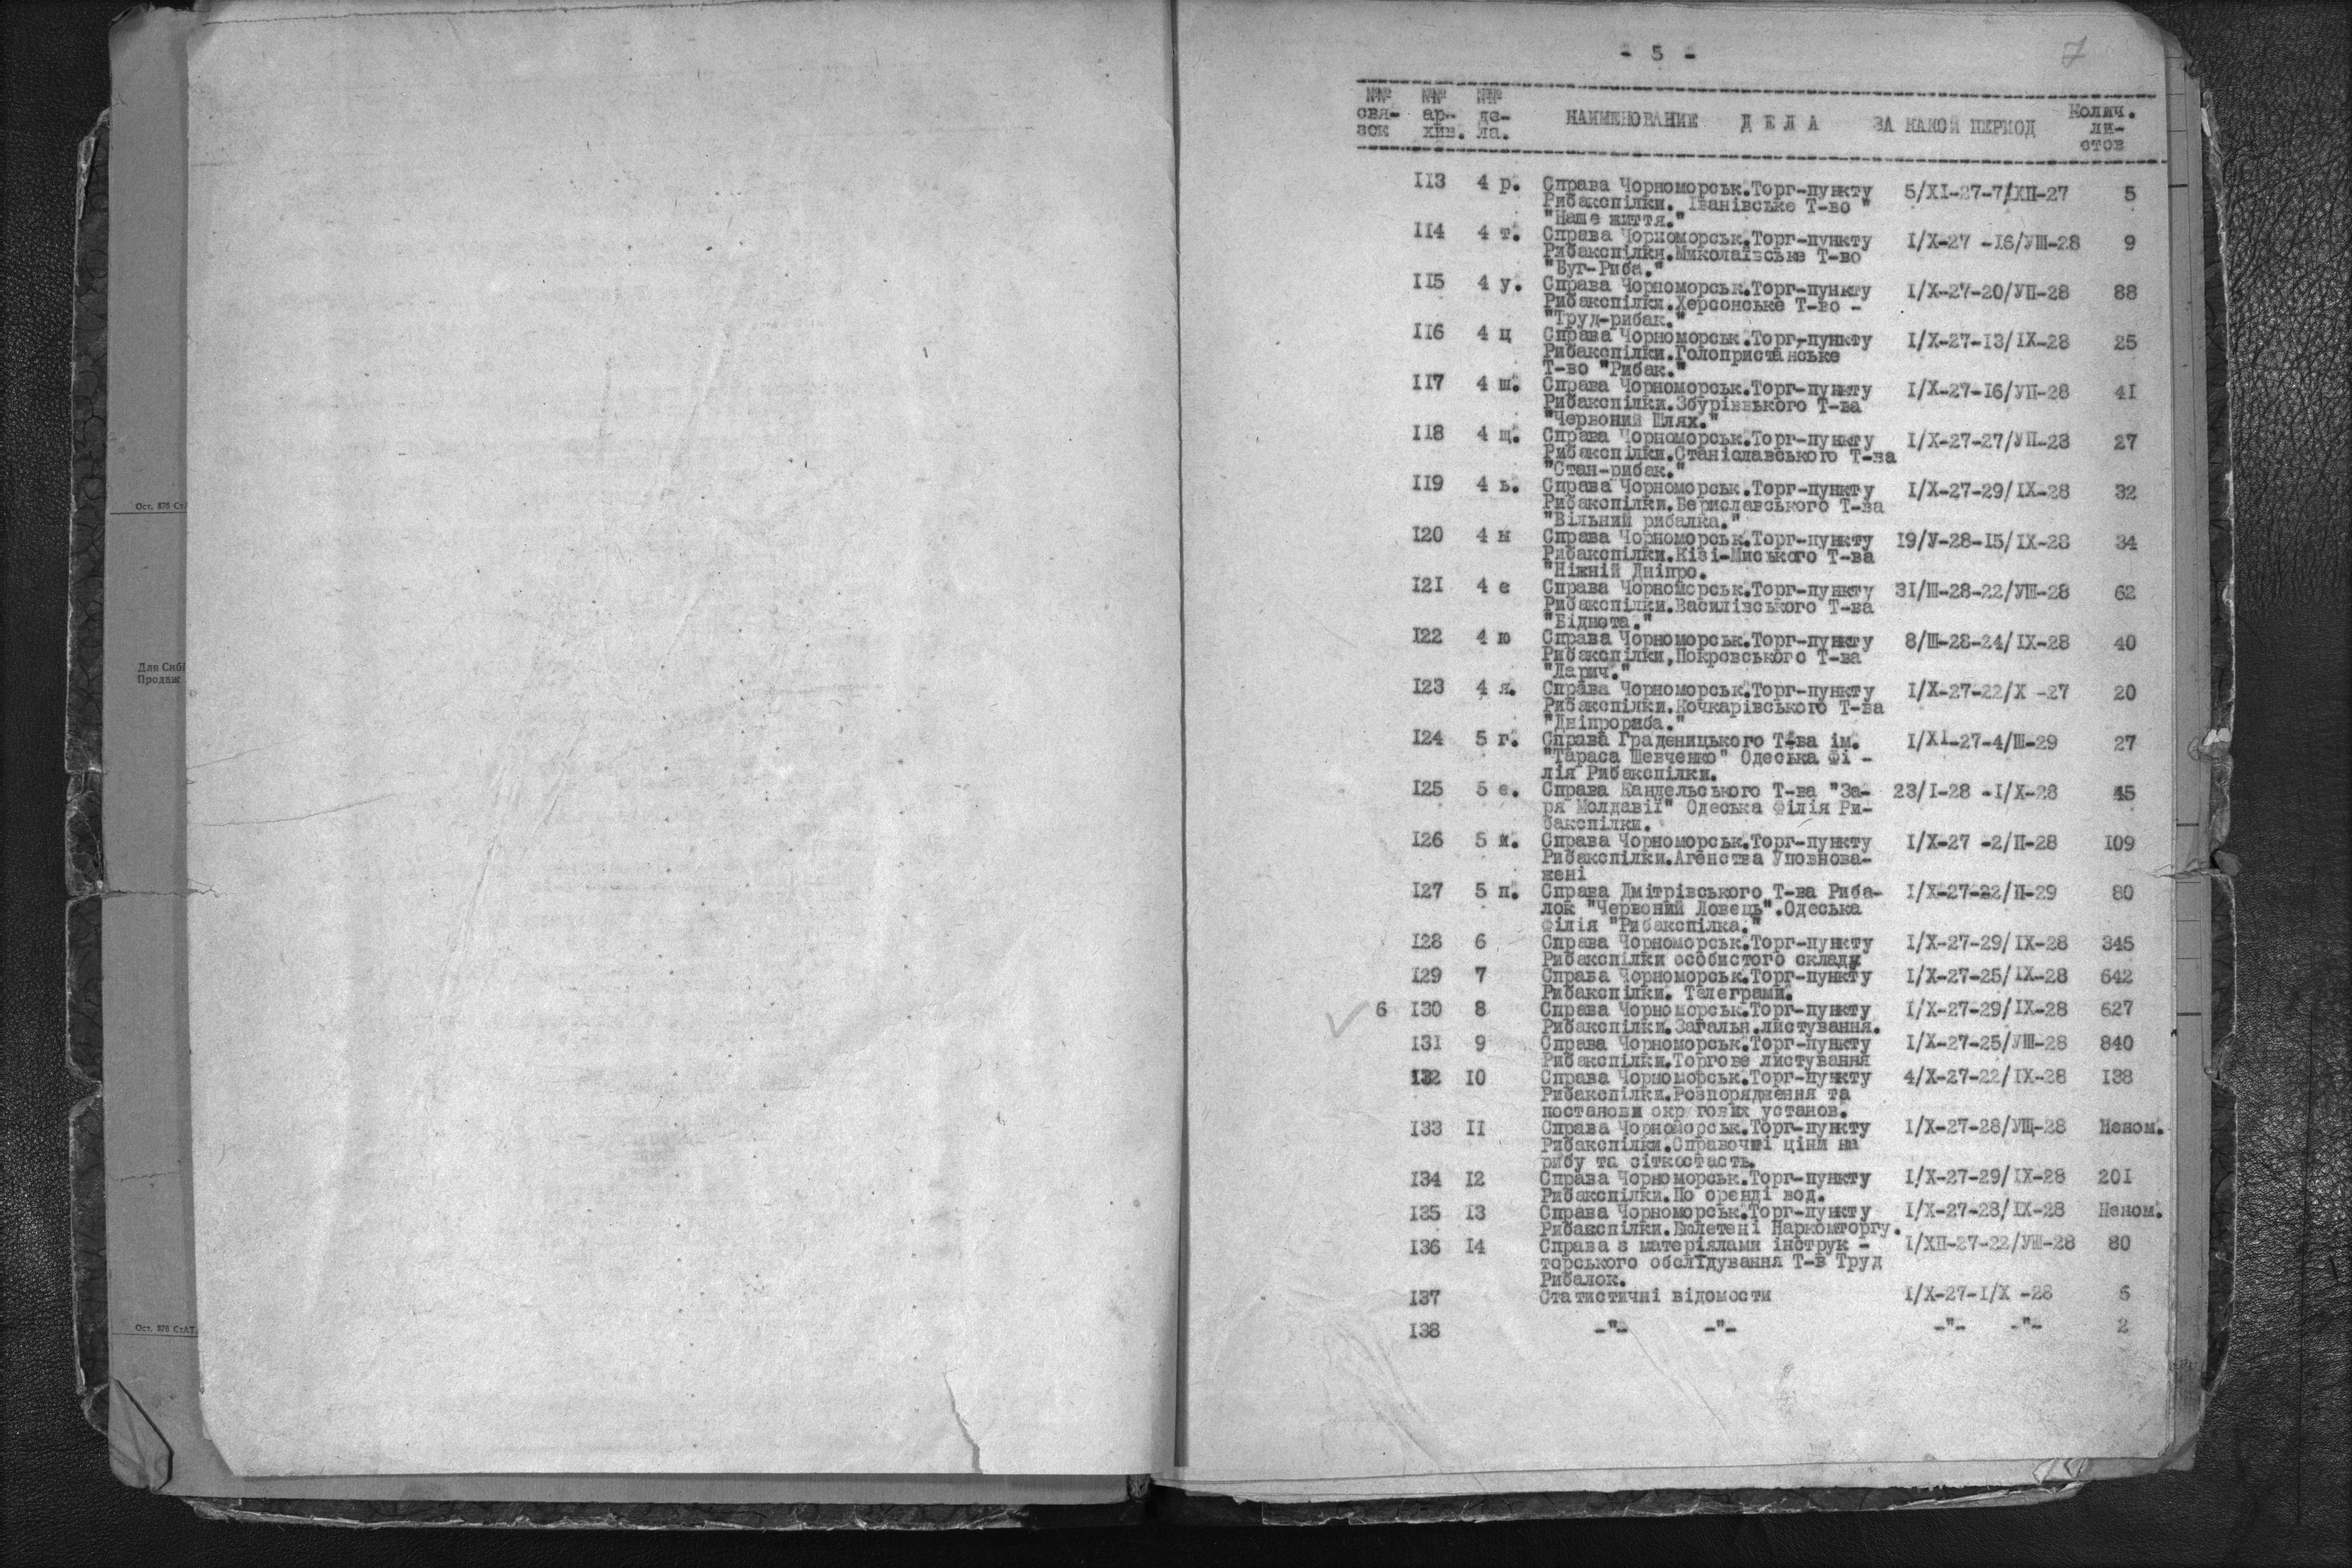 Ост. 876 СтАТ
Для Сибі
Продаж
Ост. 876 СтАТ.
- 5 -
7
№№ №№ №№
свя- ар- де- НАИМЕНОВАНИЕ Д Е Л А ЗА КАКОЙ ПЕРИОД Колич.
зок хив. ла. ли-
стов
II3 4 р. Справа Чорноморськ.Торг-пункту 5/XI-27-7/ХП-27 5
Рибакспілки. Іванівське Т-во "
"Наше життя."
II4 4 т. Справа Чорноморськ.Торг-пункту I/X-27 -I6/УШ-28 9
Рибакспілки.Миколаївське Т-во
"Буг-Риба."
II5 4 у. Справа Чорноморськ.Торг-пункту I/X-27-20/УП-28 88
Рибакспілки.Херсонське Т-во -
"Труд-рибак."
II6 4 ц Справа Чорноморськ.Торг-пункту I/X-27-I3/IX-28 25
Рибакспілки.Голопристанське
Т-во "Рибак."
II7 4 ш. Справа Чорноморськ.Торг-пункту I/X-27-I6/УП-28 4I
Рибакспілки.Збурівського Т-ва
"Червоний Шлях."
II8 4 щ. Справа Чорноморськ.Торг-пункту I/X-27-27/УП-28 27
Рибакспілки.Станіславського Т-ва
"Стан-рибак."
II9 4 ь. Справа Чорноморськ.Торг-пункту I/X-27-29/IX-28 32
Рибакспілки.Бериславського Т-ва
"Вільний рибалка."
I20 4 н Справа Чорноморськ.Торг-пункту I9/У-28-I5/IX-28 34
Рибакспілки.Кізі-Миського Т-ва
"Ніжній Дніпро.
I2I 4 є Справа Чорноморськ.Торг-пункту 3I/Ш-28-22/УШ-28 62
Рибакспілки.Василівського Т-ва
"Біднота."
I22 4 ю Справа Чорноморськ.Торг-пункту 8/Ш-28-24/IX-28 40
Рибакспілки,Покровського Т-ва
"Ларич."
I23 4 я. Справа Чорноморськ.Торг-пункту I/X-27-22/X -27 20
Рибакспілки.Кочкарівського Т-ва
"Дніпрориба."
I24 5 г. Справа Граденицького Т-ва ім. I/XI-27-4/Ш-29 27
"Тараса Шевченко" Одеська Фі -
лія Рибакспілки.
I25 5 е. Справа Кандельського Т-ва "За- 23/I-28 -I/X-28 45
ря Молдавії" Одеська Філія Ри-
бакспілки.
I26 5 и. Справа Чорноморськ.Торг-пункту I/X-27 -2/П-28 I09
Рибакспілки.Агенства Уповнова-
жені
I27 5 п. Справа Дмітрівського Т-ва Риба- I/X-27-22/П-29 80
лок "Червоний Ловець".Одеська
Філія "Рибакспілка."
I28 6 Справа Чорноморськ.Торг-пункту I/X-27-29/IX-28 345
Рибакспілки особистого складу
I29 7 Справа Чорноморськ.Торг-пункту I/X-27-25/IX-28 642
Рибакспілки. Телеграми.
6 I30 8 Справа Чорноморськ.Торг-пункту I/X-27-29/IX-28 627
Рибакспілки.Загальн.листування.
I3I 9 Справа Чорноморськ.Торг-пункту I/X-27-25/УШ-28 840
Рибакспілки.Торгове листування
I32 I0 Справа Чорноморськ.Торг-пункту 4/X-27-22/IX-28 I38
Рибакспілки.Розпорядження та
постанови окр гових установ.
I33 II Справа Чорноморськ.Торг-пункту I/X-27-28/УЩ-28 Неном.
Рибакспілки.Справочні ціни на
рибу та сіткостасть.
I34 I2 Справа Чорноморськ.Торг-пункту I/X-27-29/IX-28 20I
Рибакспілки.По оренді вод.
I35 I3 Справа Чорноморськ.Торг-пункту I/X-27-28/IX-28 Неном.
Рибакспілки.Бюлетені Наркомторгу.
I36 I4 Справа з матеріялами інструк - I/ХП-27-22/УШ-28 80
торського обслідування Т-в Труд
Рибалок.
I37 Статистичні відомости I/X-27-I/X -28 6
I38 -"- -"- -"- -"- 2